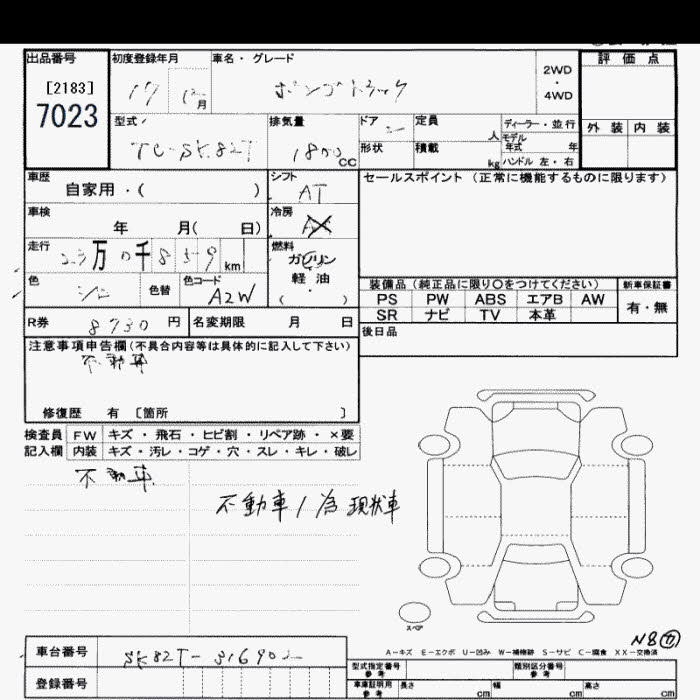 出品番号 初度登録年月 車名・グレード 評価点
[2183] 17 12月 ボンゴトラック 2WD・4WD
7023
型式 排気量 ドア 定員 ディーラー・並行 外装 内装
TC-SK82T 1800CC 2 人 モデル年式 年
形状 積載 kg ハンドル 左・右
車歴 シフト セールスポイント (正常に機能するものに限ります)
自家用・( ) AT
車検 冷房
年 月( 日) AC
走行 燃料
23万0千859km ガソリン
軽油
( )
色 色替 色コード
シロ A2W
装備品 (純正品に限り○をつけてください) 新車保証書
PS PW ABS エアB AW 有・無
SR ナビ TV 本革
R券 8730円 名変期限 月 日 後日品
注意事項申告欄(不具合内容等は具体的に記入して下さい)
不動車
修復歴 有 [箇所 ]
検査員 FW キズ・飛石・ヒビ割・リペア跡・×要
記入欄 内装 キズ・汚レ・コゲ・穴・スレ・キレ・破レ
不動車
不動車ノ為 現状車
スペア
N8 ⑰
A-キズ E-エクボ U-凹み W-補修跡 S-サビ C-腐食 XX-交換済
車台番号 SK82T-316902
登録番号
型式指定番号 参考 類別区分番号 参考
車庫証明用 参考 長さ cm 幅 cm 高さ cm